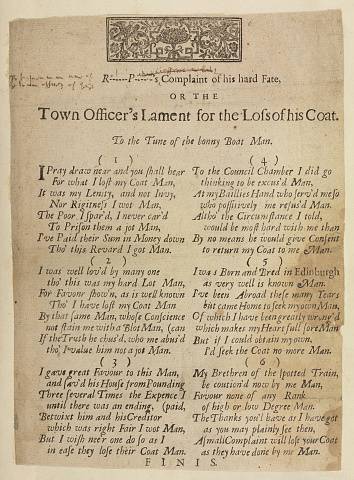 R——P——'s Complaint of his hard Fate,
OR THE
Town Officer's Lament for the Loss of his Coat.
To the Tune of the bonny Boat Man.
( 1 )
I Pray draw near and you shall hear
For what I lost my Coat Man,
It was my Lenity, and not Invy,
Nor Rigitness I wot Man,
The Poor I spar'd, I never car'd
To Prison them a jot Man,
I've Paid their Sum in Money down
Tho' this Revard I got Man.
( 2 )
I was well lov'd by many one
tho' this was my hard Lot Man,
For Favour show'n, as is well known
Tho' I have lost my Coat Man
By that same Man, whose Conscience
not stain me with a Blot Man, (can
If the Truth he chus'd, who me abus'd
tho' I value him not a jot Man.
( 3 )
I gave great Favour to this Man,
and sav'd his House from Pounding
Three several Times the Expence I
until there was an ending, (paid,
Betwixt him and his Creditor
which was right Fair I wot Man,
But I wish ne'er one do so as I
in ease they lose their Coat Man.
( 4 )
To the Council Chamber I did go
thinking to be excus'd Man,
At my Baillies Hand who serv'd me so
who possitively me refus'd Man.
Altho' the Circumstance I told,
would be most hard with me than
By no means he would give Consent
to return my Coat to me Man.
( 5 )
I was a Born and Bred in Edinburgh
as very well is known Man.
I've been Abroad these many Years
but came Home to seek my own, Man,
Of which I have been greatly wrong'd
which makes my Heart full sore Man
But if I could obtain my own,
I'd seek the Coat no more Man.
( 6 )
My Brethren of the spotted Train,
be coution'd now by me Man,
Favour none of any Rank
of high or low Degree Man.
The Thanks you'll have as I have got
as you may plainly see then,
A small Complaint will lose your Coat
as they have done by me Man.
FINIS.